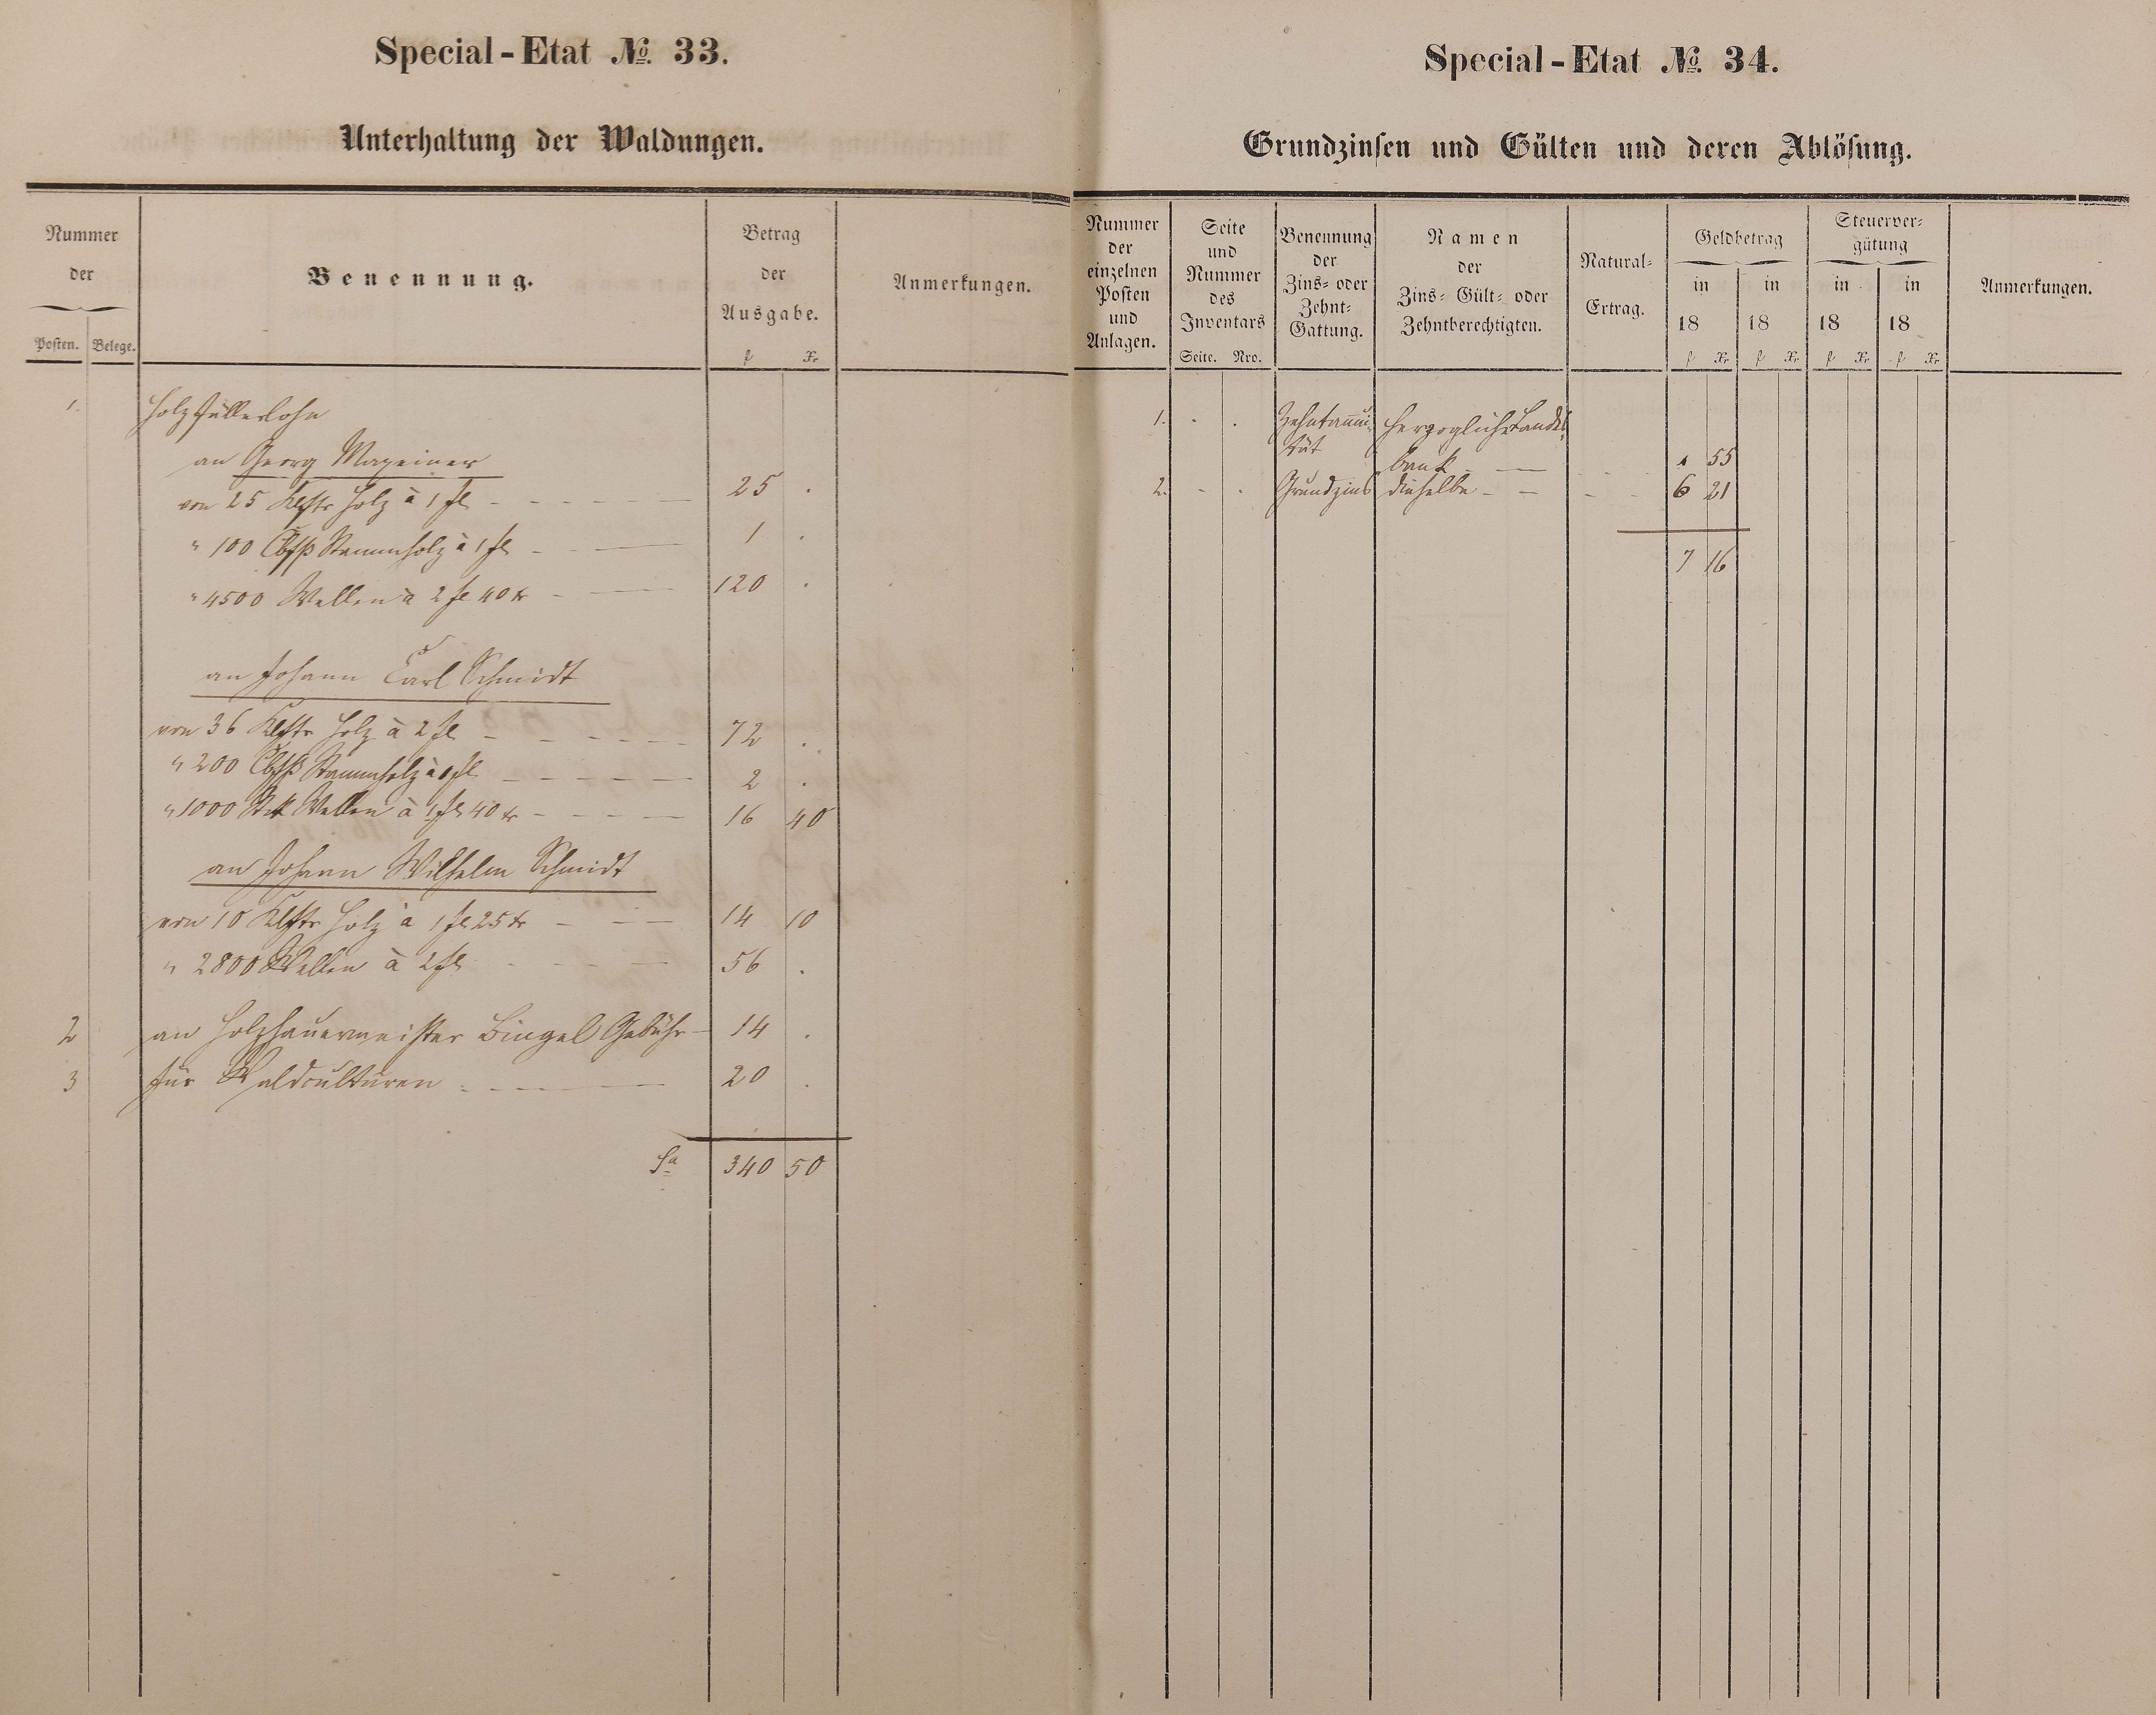 Special-Etat № 33.
Unterhaltung der Waldungen.
Nummer
der
Posten. Belege.
Benennung.
Betrag
der
Ausgabe.
f Xr
Anmerkungen.
1. Holzfällerlohn
an Georg Maxeiner
von 25 Klftr Holz à 1 fl - - - - 25 .
" 100 Cbfß Stammholz à 1 fl - - 1 .
" 4500 Wellen à 2 fl 40 xr - - 120 .
an Johann Carl Schmidt
von 36 Klftr Holz à 2 fl - - - - 72 .
" 200 Cbfß Stammholz à 1 fl - - - - 2 .
" 1000 Stk Wellen à 1 fl 40 xr - - - - 16 40
an Johann Wilhelm Schmidt
von 10 Klftr Holz à 1 fl 25 xr - - - 14 10
" 2800 Wellen à 2 fl - - - - 56 .
2 an Holzhauermeister Bingel Gebühr - 14 .
3 für Waldculturen - - - - 20 .
Sa 340 50
Special-Etat № 34.
Grundzinsen und Gülten und deren Ablösung.
Nummer
der
einzelnen
Posten
und
Anlagen.
Seite
und
Nummer
des
Inventars
Seite. Nro.
Benennung
der
Zins- oder
Zehnt-
Gattung.
Namen
der
Zins- Gült- oder
Zehntberechtigten.
Natural-
Ertrag.
Geldbetrag
in in
18 18
f Xr f Xr
Steuerver-
gütung
in in
18 18
f Xr f Xr
Anmerkungen.
1. . . Zehntannui- Herzogliche Landes-
tät bank - - - - 1 55
2. - . Grundzins dieselbe - - - - 6 21
7 16